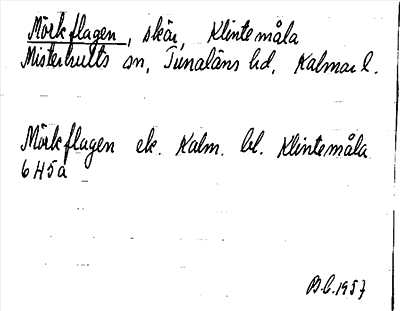 Mörkflagen, skär, Klintemåla
Misterhults sn, Tunaläns hd, Kalmar l.
Mörkflagen ek. Kalm. bl. Klintemåla
6H5a
B.C. 1957